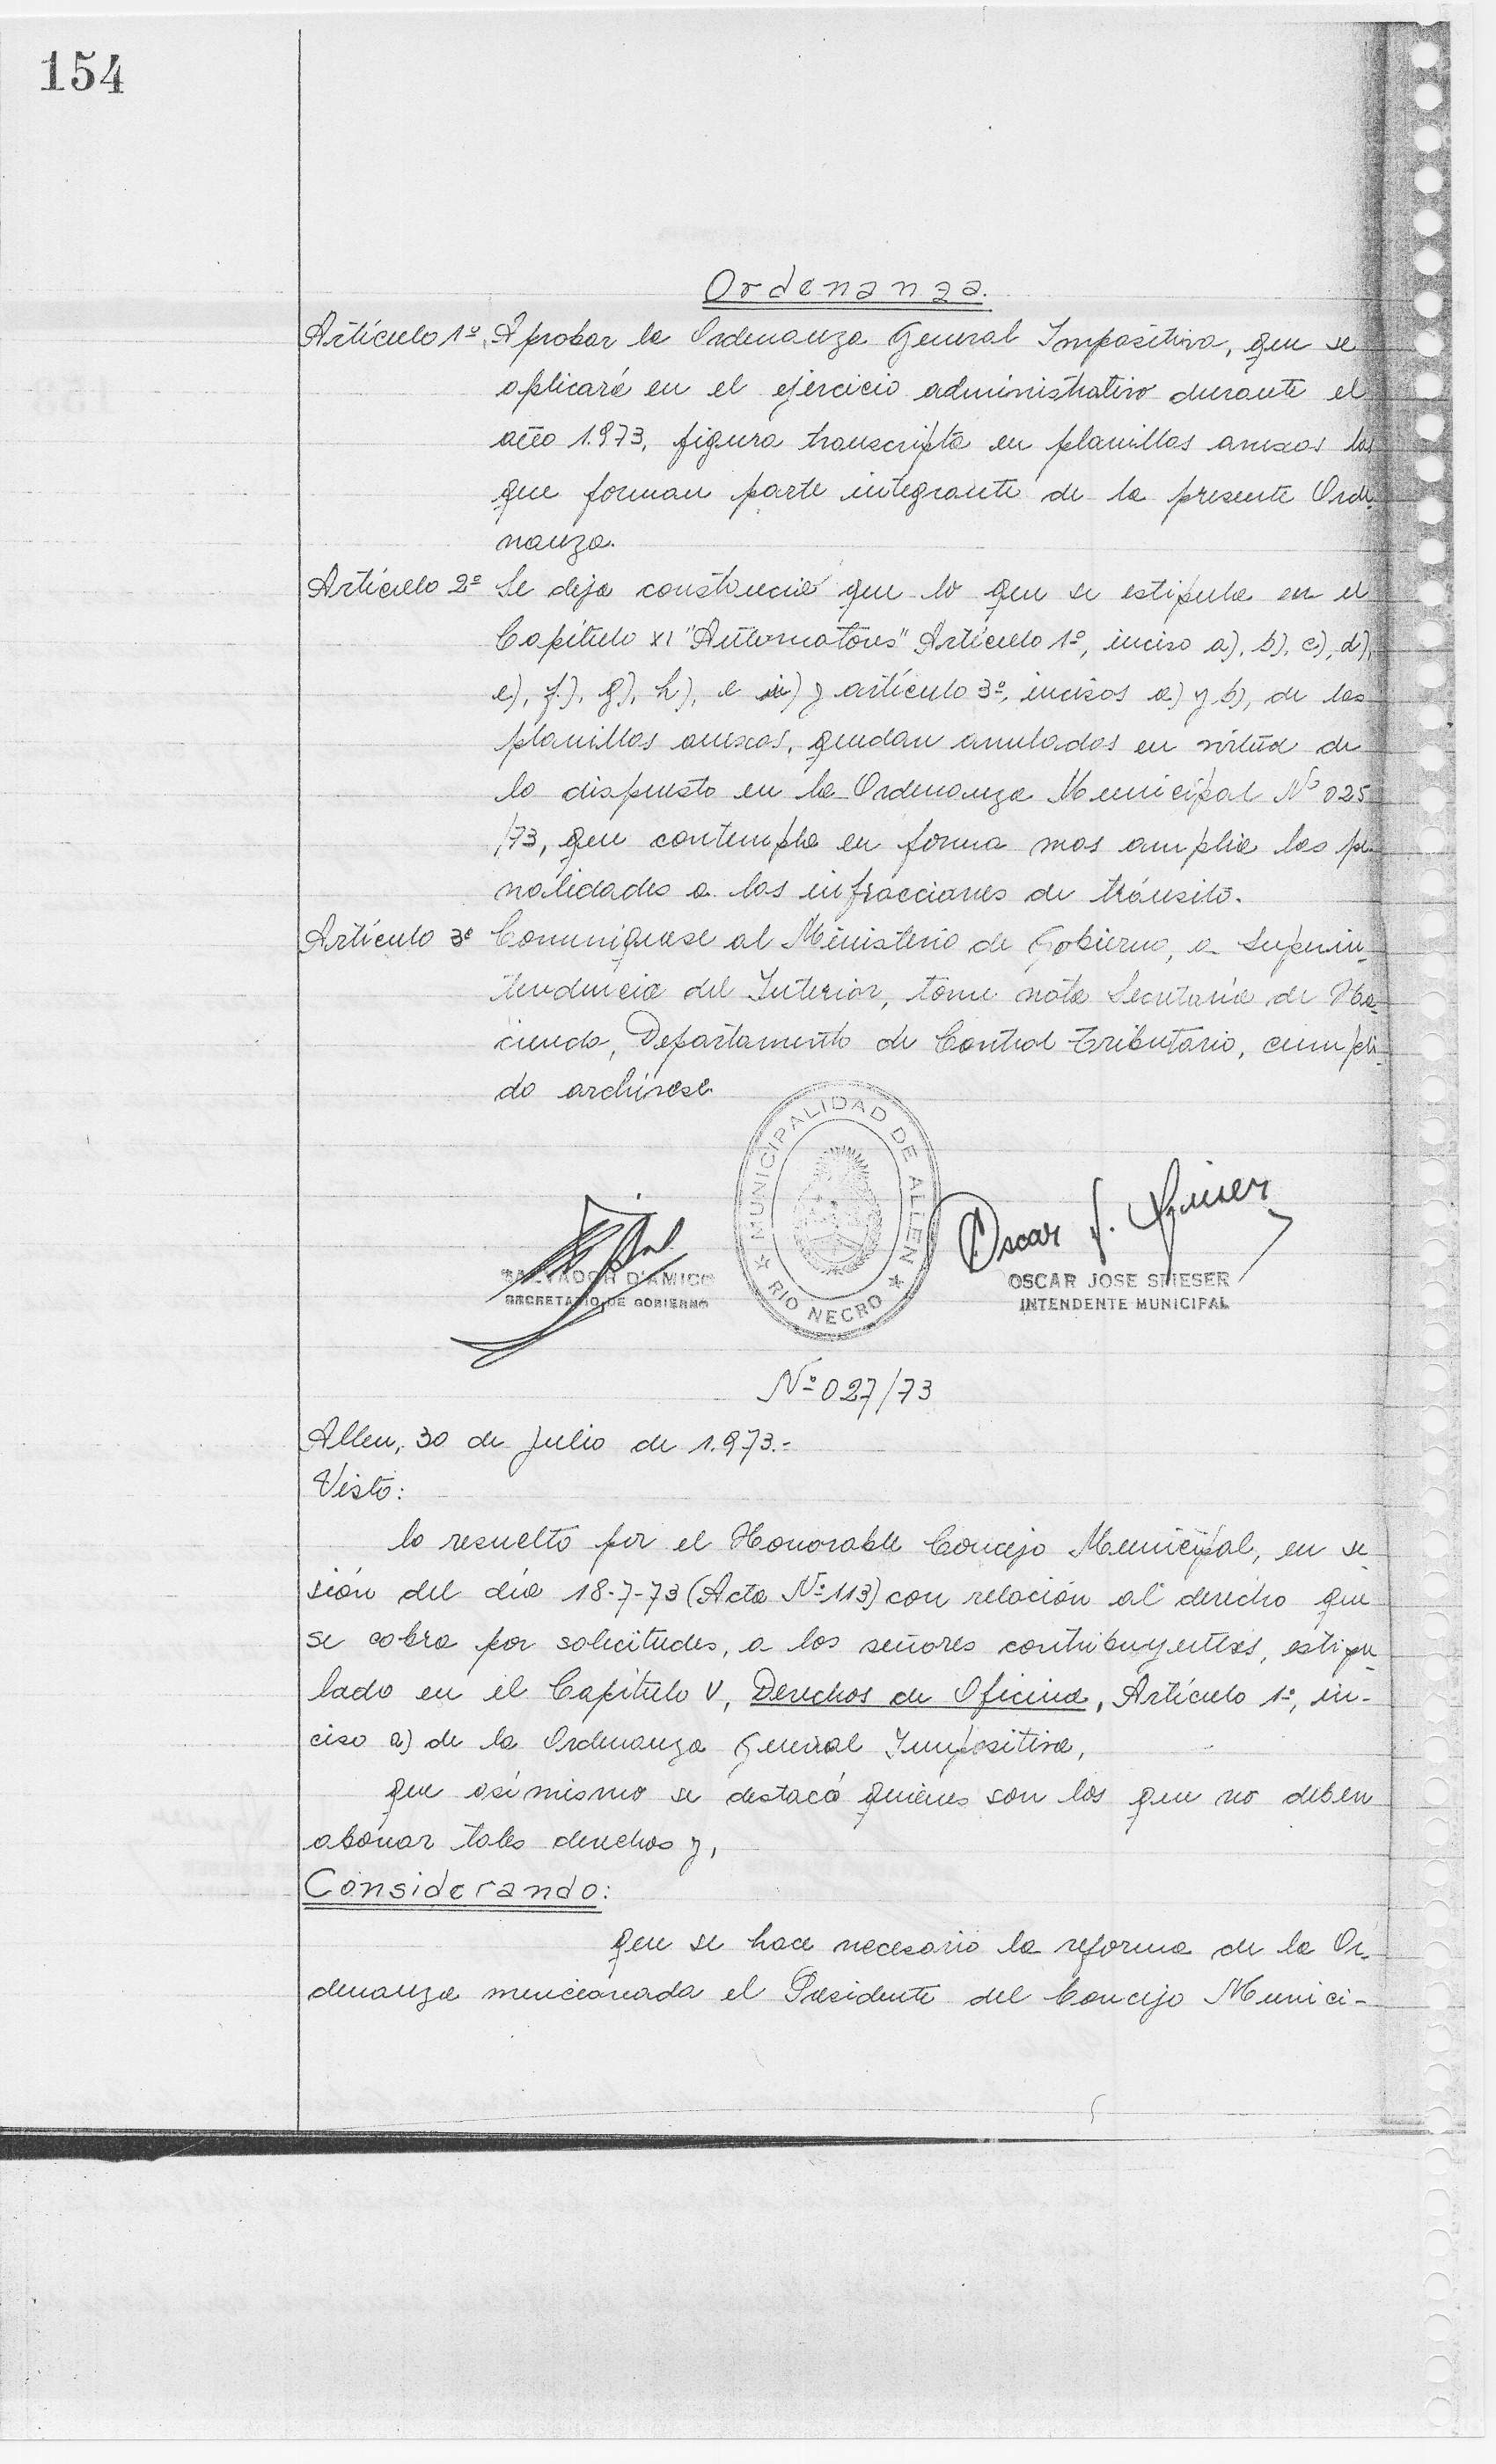 154
Ordenanza.
Artículo 1º, Aprobar la Ordenanza General Impositiva, que se
aplicará en el ejercicio administrativo durante el
año 1.973, figura transcripta en planillas anexas las
que forman parte integrante de la presente Orde-
nanza.
Artículo 2º Se deja constancia que lo que se estipula en el
Capítulo XI "Automotores" Artículo 1º, inciso a), b), c), d),
e), f), g), h), e i) y artículo 3º, incisos a) y b), de las
planillas anexas, quedan anulados en virtud de
lo dispuesto en la Ordenanza Municipal Nº 025
/73, que contempla en forma mas amplia las pe-
nalidades a las infracciones de tránsito.
Artículo 3º Comuniquese al Ministerio de Gobierno, a Superin-
tendencia del Interior, tome nota Secretaría de Ha-
cienda, Departamento de Control Tributario, cumpli-
do archivese.
MUNICIPALIDAD DE ALLEN
RIO NEGRO
Oscar J. Smeser
SALVADOR D'AMICO
SECRETARIO DE GOBIERNO
OSCAR JOSE SMESER
INTENDENTE MUNICIPAL
Nº 027/73
Allen, 30 de Julio de 1.973.-
Visto:
lo resuelto por el Honorable Concejo Municipal, en se-
sión del día 18-7-73 (Acta Nº 113) con relación al derecho que
se cobra por solicitudes, a los señores contribuyentes, estipu-
lado en el Capítulo V, Derechos de Oficina, Artículo 1º, in-
ciso a) de la Ordenanza General Impositiva,
que asímismo se destacó quienes son los que no deben
abonar tales derechos y,
Considerando:
que se hace necesario la reforma de la Or-
denanza mencionada el Presidente del Concejo Munici-